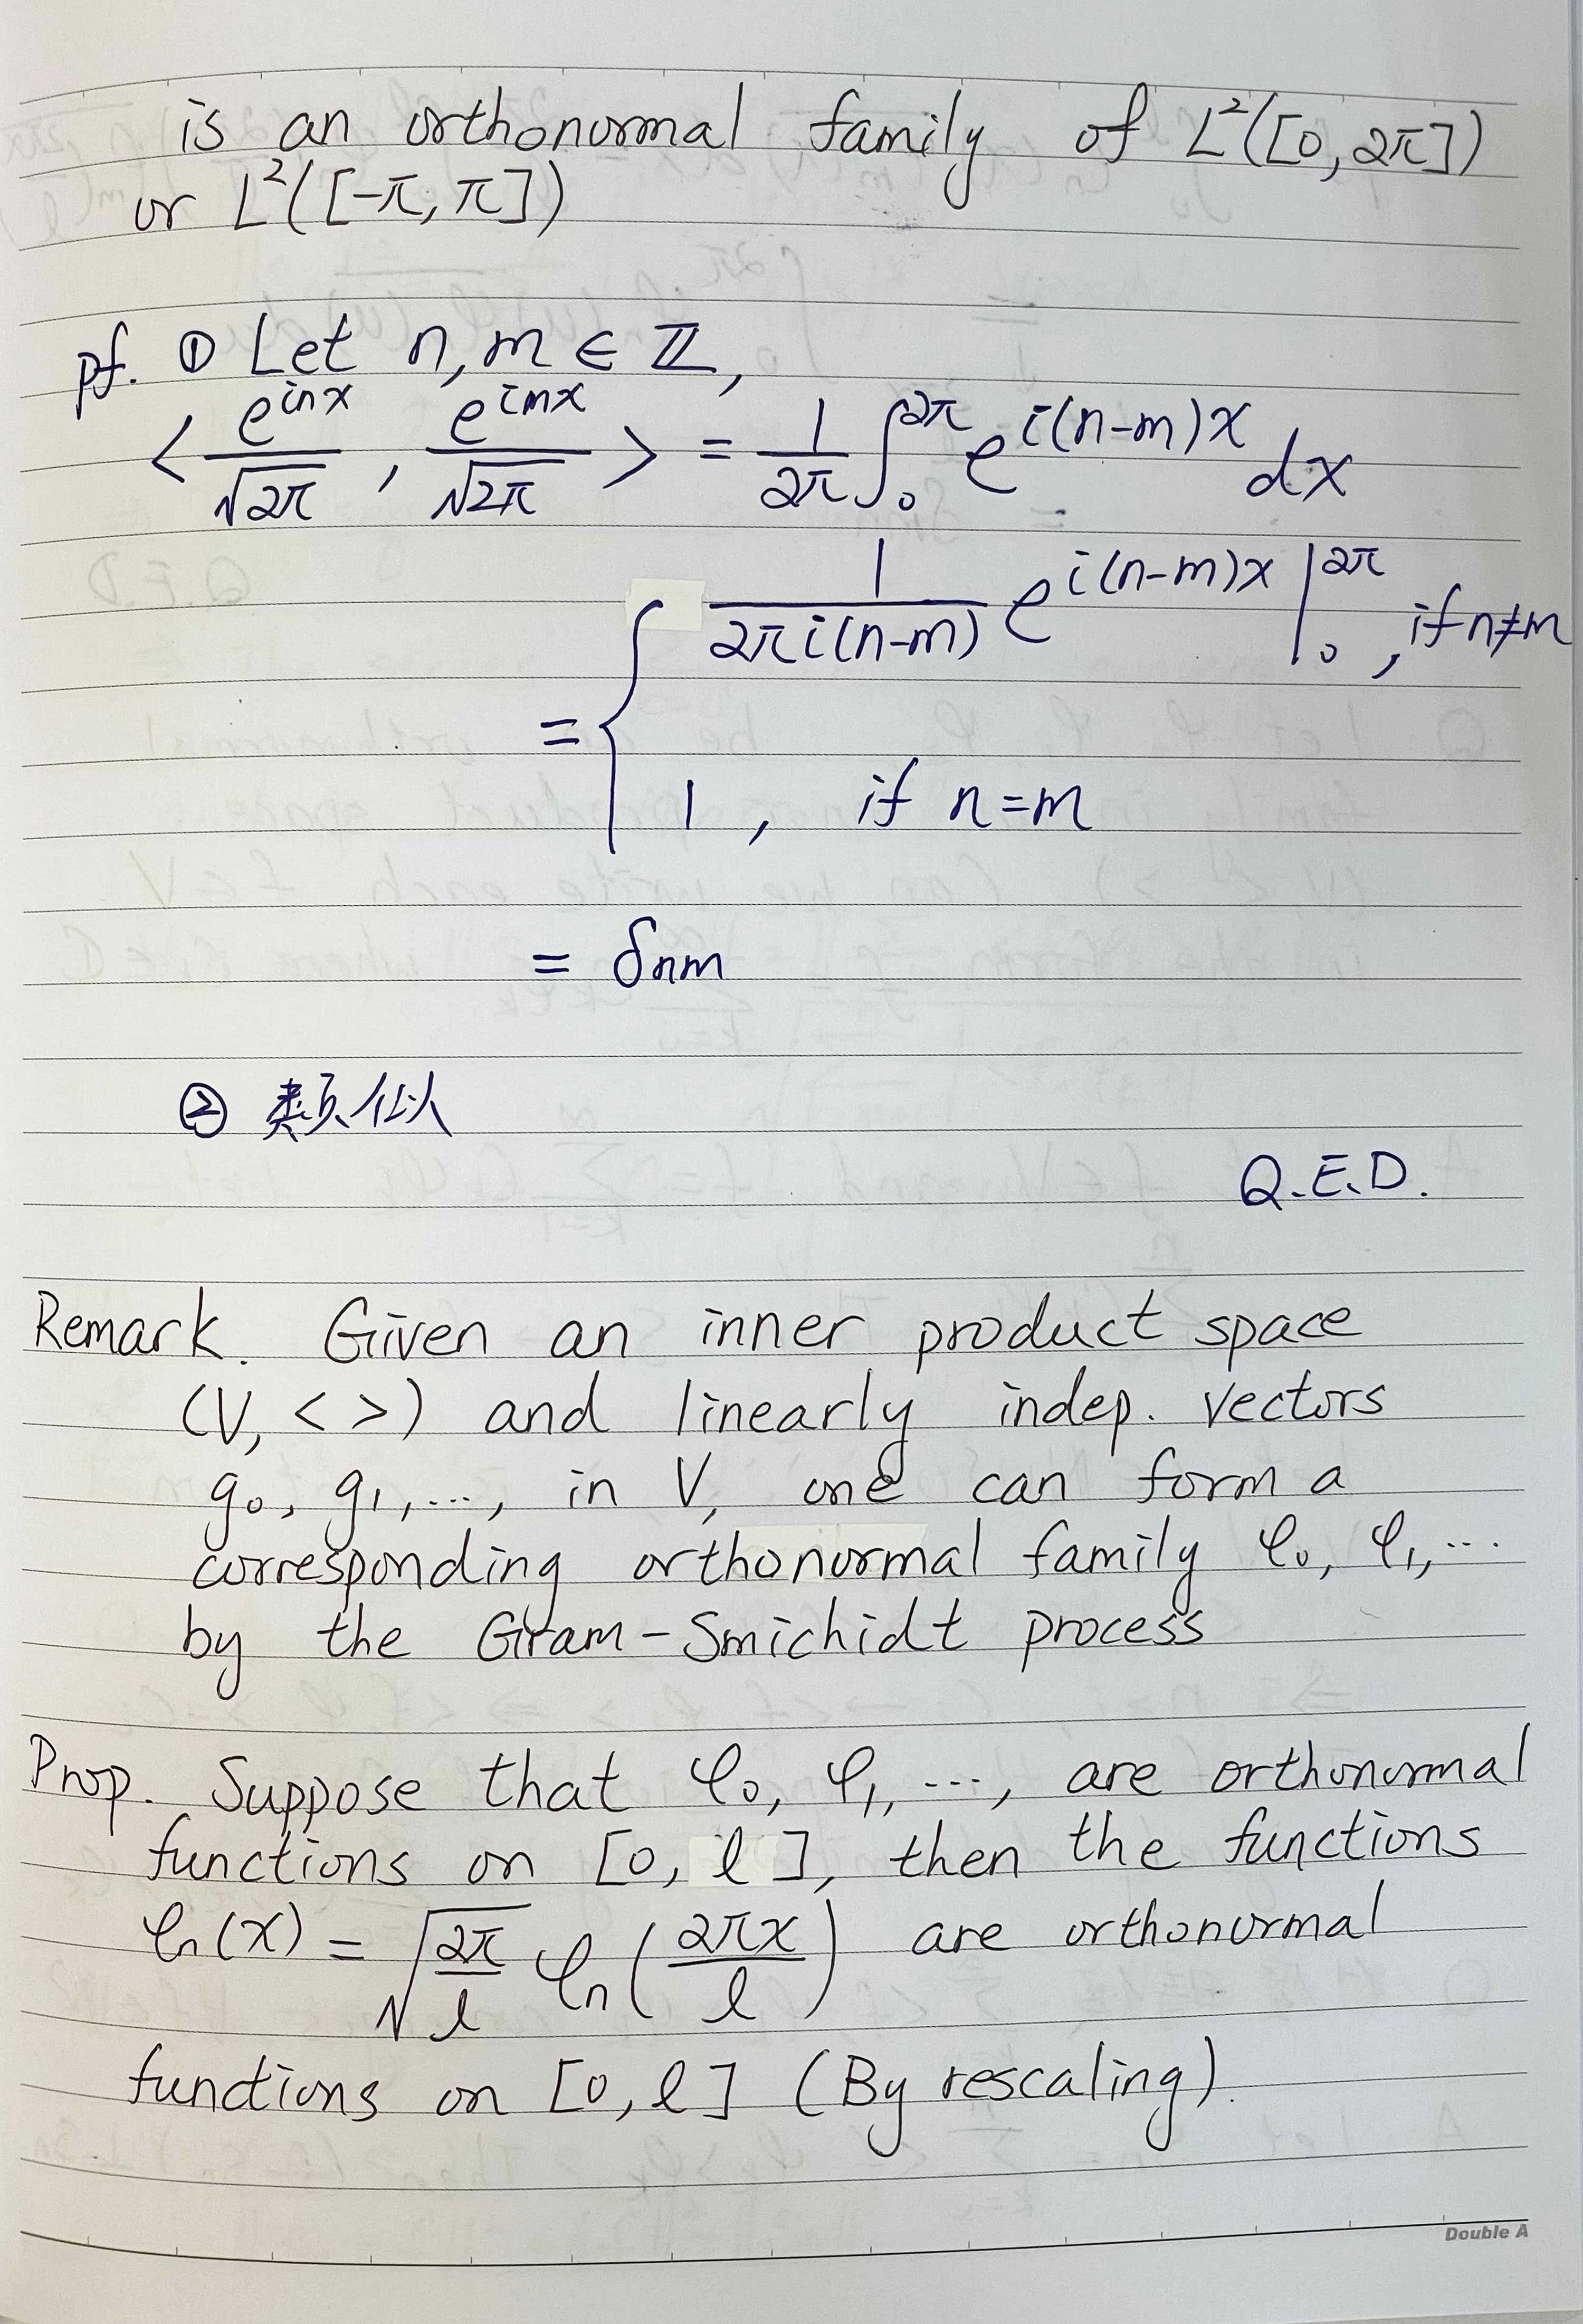 is an orthonormal family of L²([0, 2π])
or L²([-π, π])
pf. ① Let n, m ∈ ℤ,
< e^{inx}/√2π , e^{imx}/√2π > = 1/2π ∫₀^{2π} e^{i(n-m)x} dx
= { 1/(2πi(n-m)) e^{i(n-m)x} |₀^{2π} , if n≠m
1 , if n=m
= δnm
② 类似
Q.E.D.
Remark. Given an inner product space
(V, < >) and linearly indep. vectors
g₀, g₁, ..., in V, one can form a
corresponding orthonormal family φ₀, φ₁, ...
by the Gram-Smichidt process
Prop. Suppose that φ₀, φ₁, ..., are orthonormal
functions on [0, l], then the functions
φₙ(x) = √(2π/l) φₙ(2πx/l) are orthonormal
functions on [0, l] (By rescaling).
Double A